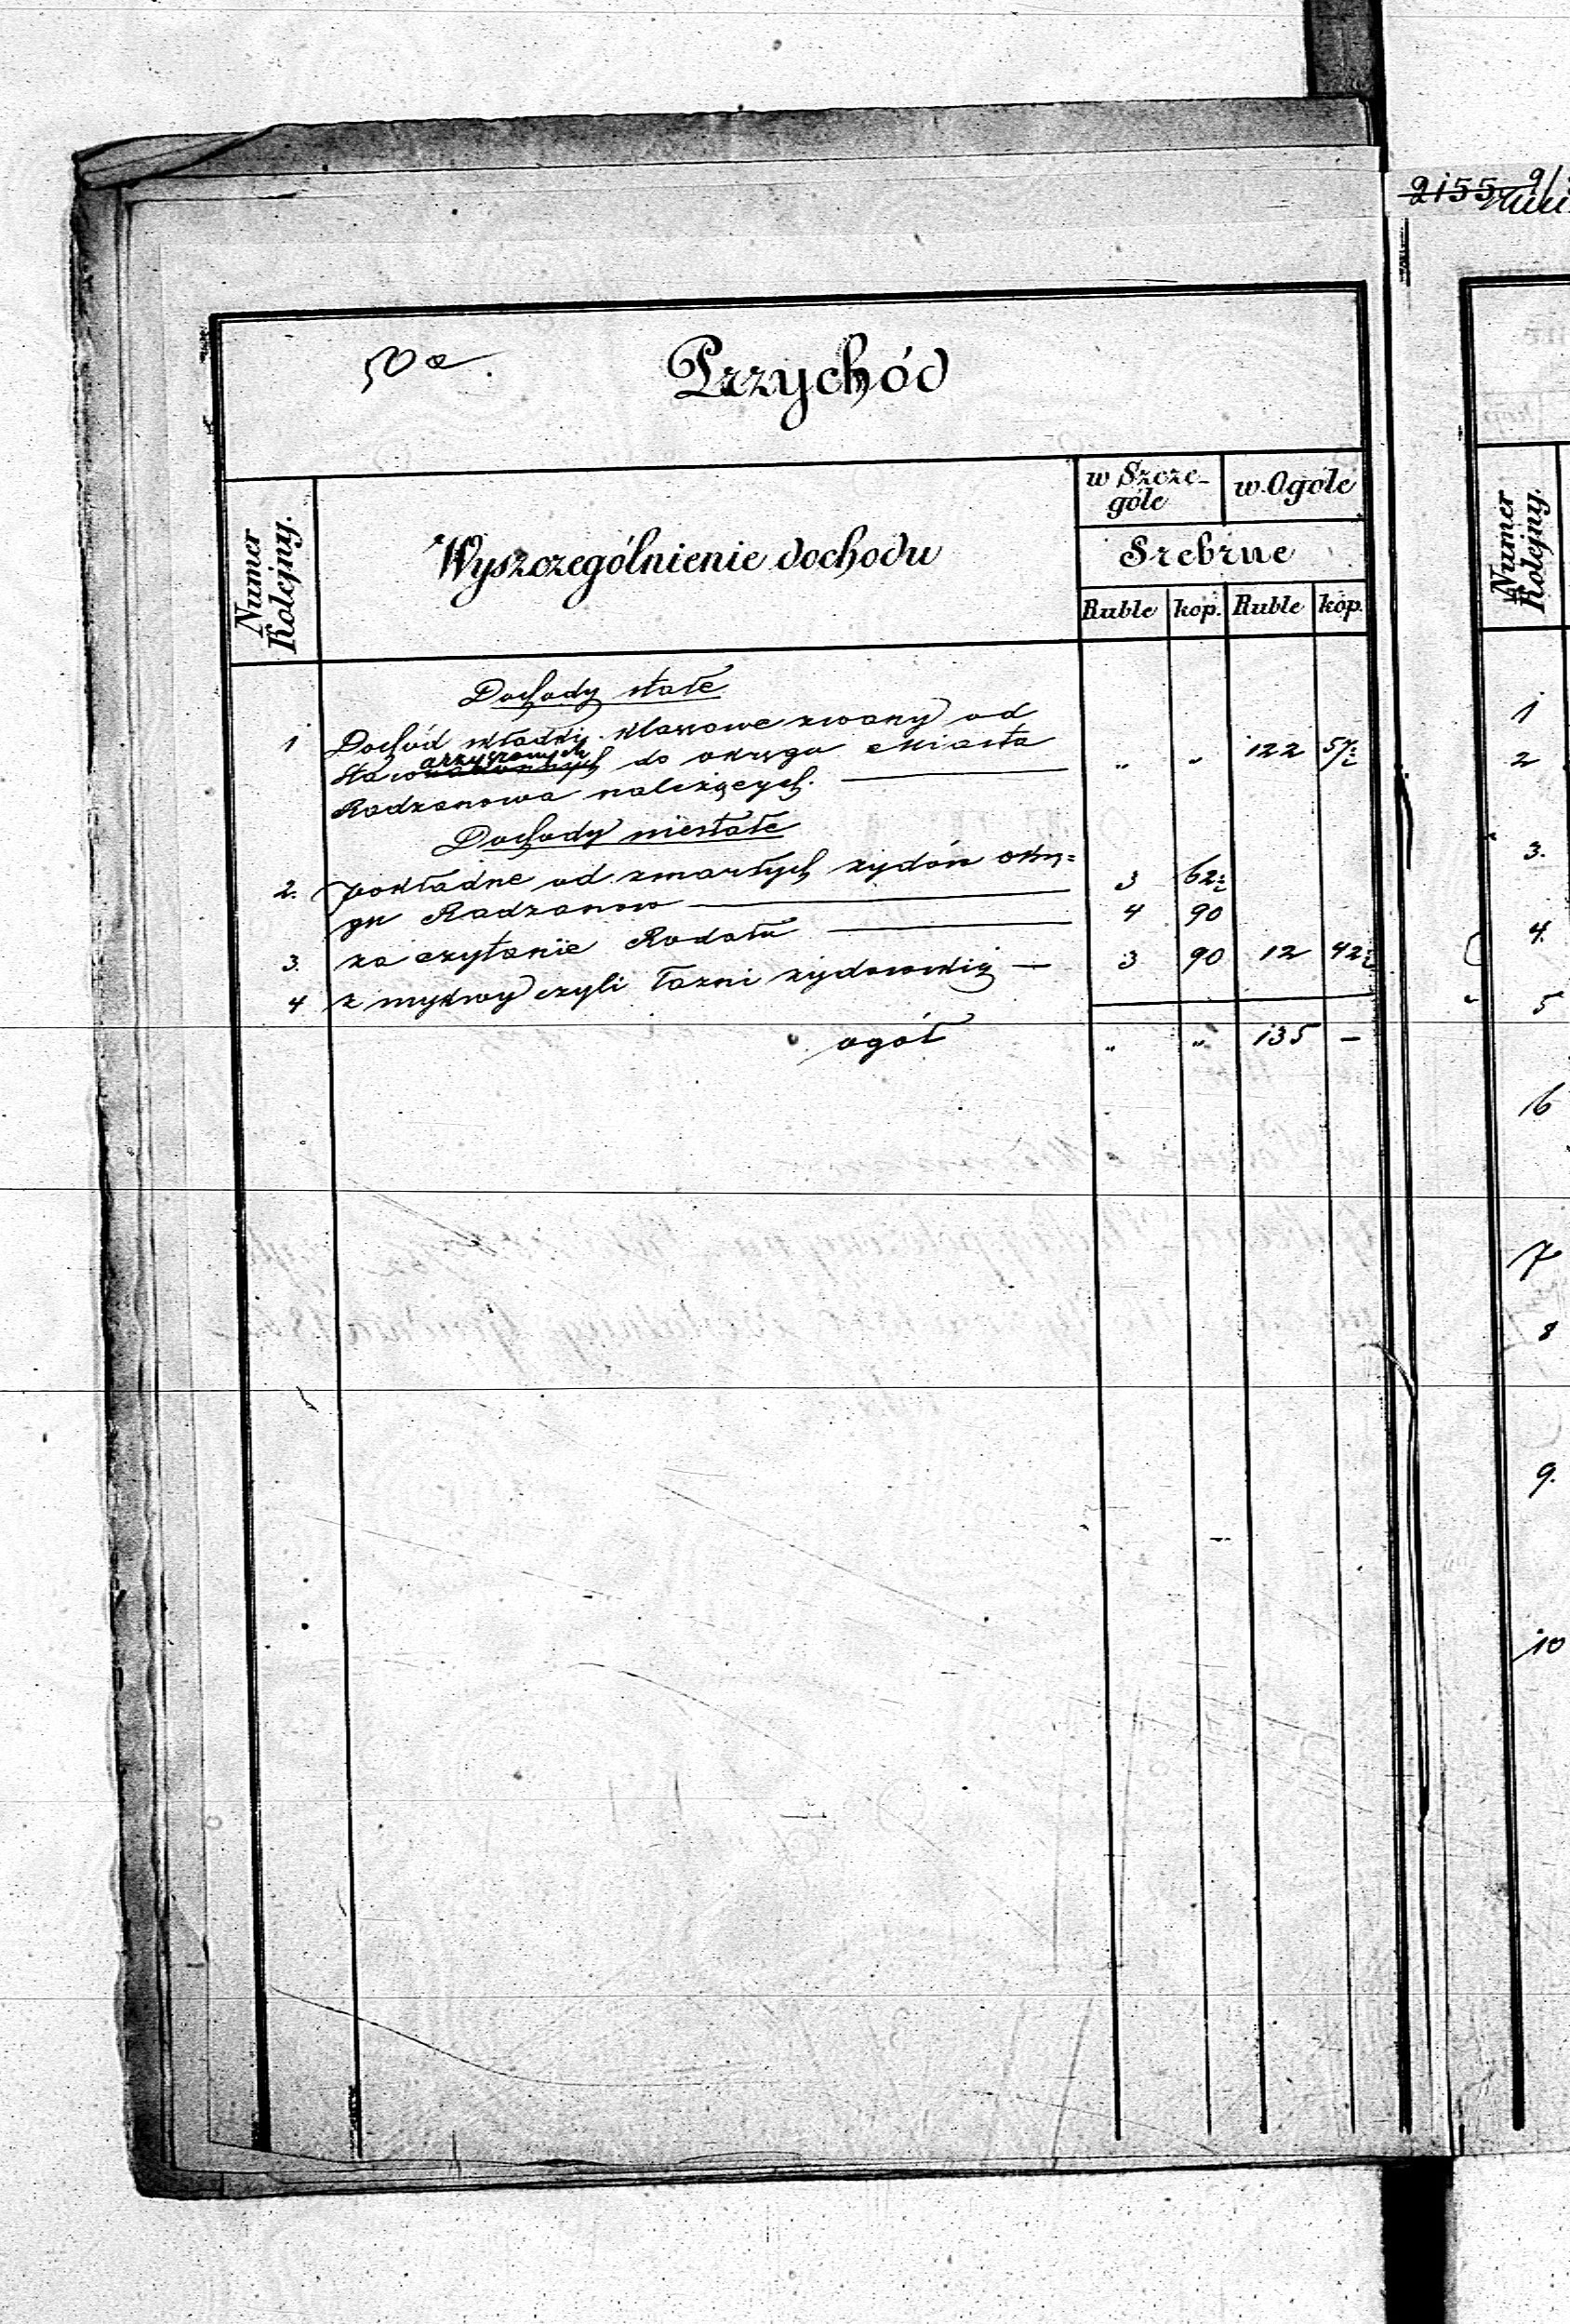 2155
50a.
Przychód
Numer Kolejny.
Wyszczególnienie dochodu
w Szcze-
góle
w Ogóle
Srebrne
Ruble kop. Ruble kop.
Dochody stałe
1 Dochód składki klassowe zwany od
Sta
do okręgu Miasta " " 122 57½
Radzanowa należących.
Dochody niestałe
2. pokładne od zmarłych żydów okrę=
gu Radzanow 3 62½
3. za czytanie Rodału 4 90
4 z mykwy czyli łazni żydowskię 3 90 12 42½
ogół " " 135 —
Numer Kolejny.
1
2
3.
4.
5
6
7
8
9.
10